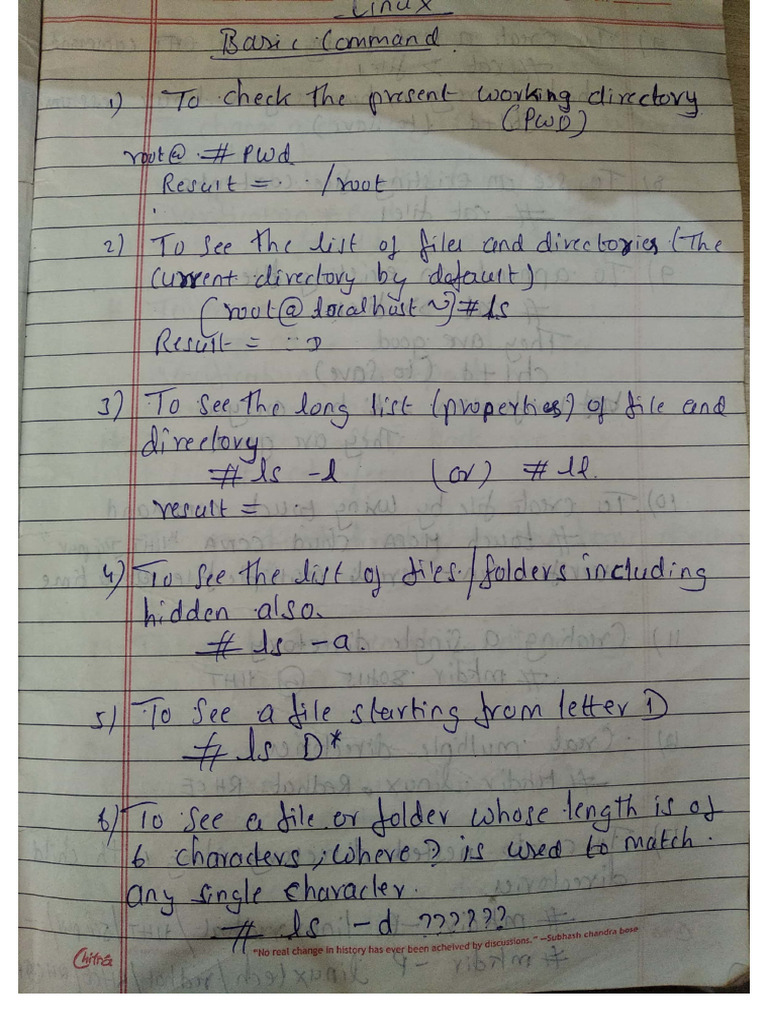 Linux
Basic Command
1) To check the present working directory
(PWD)
root@ # Pwd
Result = /root
2) To see the list of files and directories (The
current directory by default)
[root@localhost ~]# ls
Result =
3) To see the long list (properties) of file and
directory
# ls -l (or) # ll.
result =
4) To see the list of files/folders including
hidden also.
# ls -a.
5) To see a file starting from letter D
# ls D*
6) To see a file or folder whose length is of
6 characters, where ? is used to match
any single character.
# ls -d ??????
Chitra
"No real change in history has ever been acheived by discussions." —Subhash chandra bose